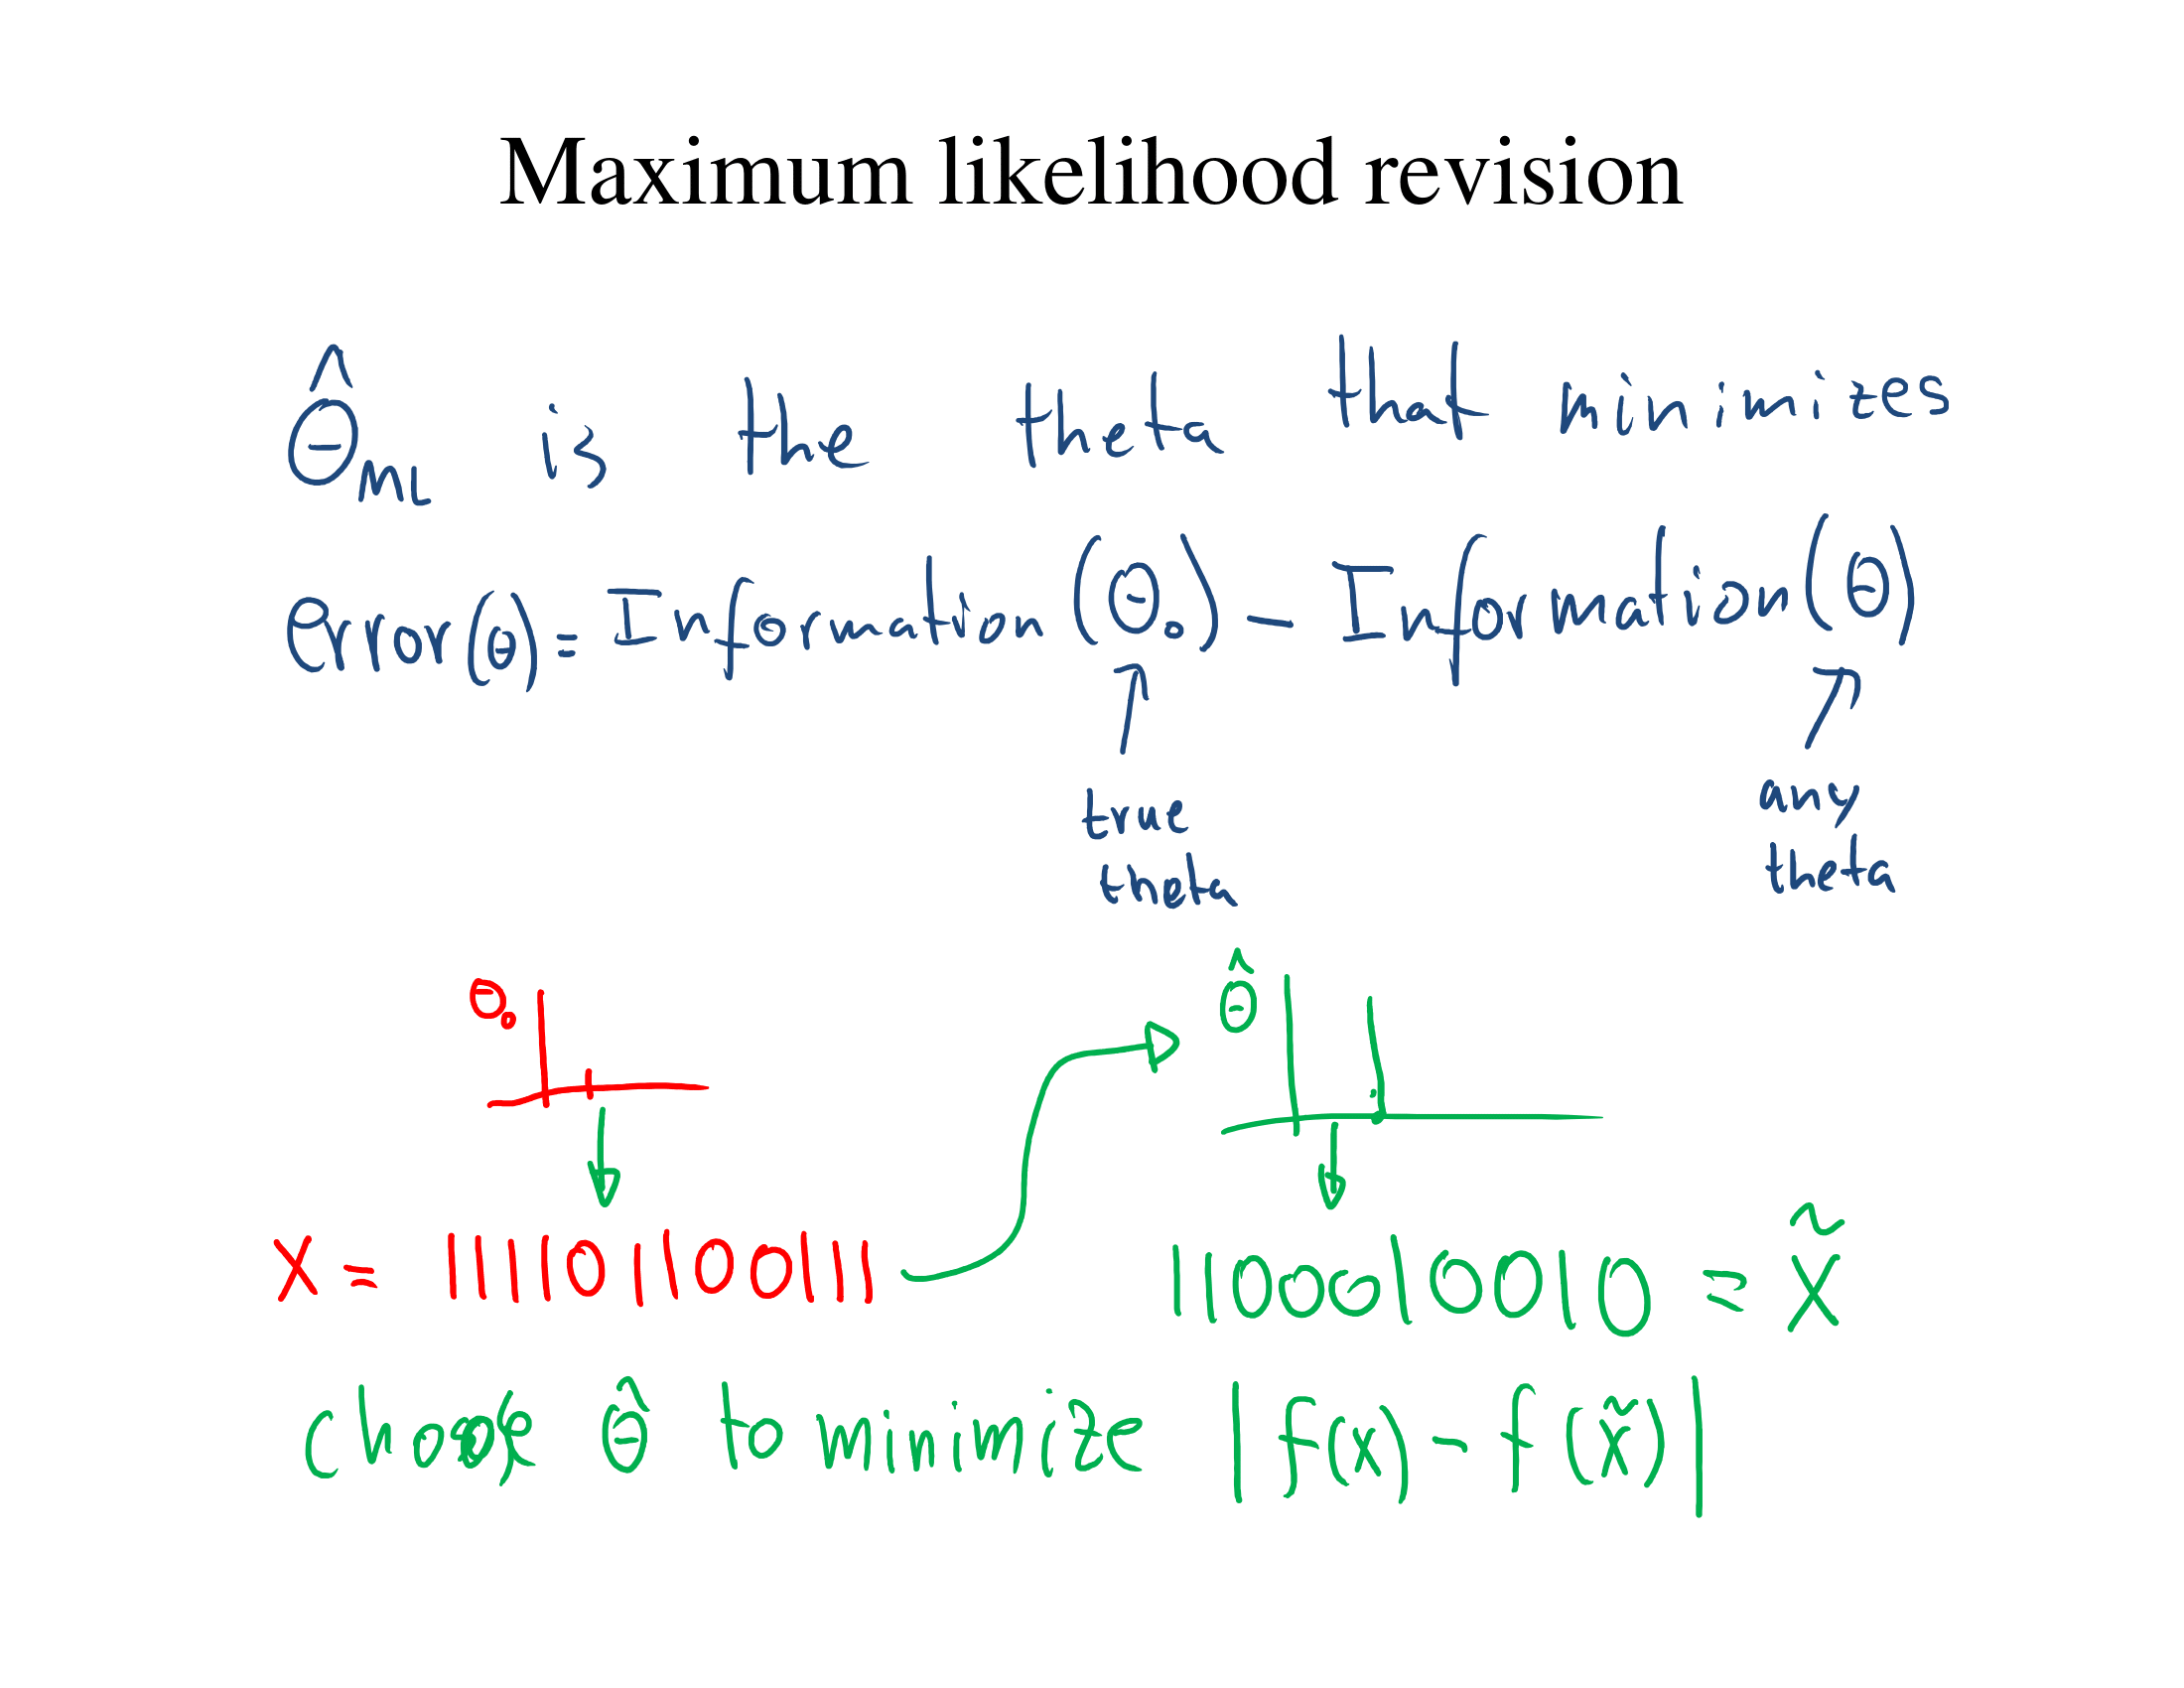 Maximum likelihood revision
θ̂_ML is the theta that minimizes
error(θ) = Information(θ₀) − Information(θ)
true theta
any theta
θ₀
θ̂
X = 111101100111
1100010010 = X̃
choose θ̂ to minimize |f(x) − f(x̃)|